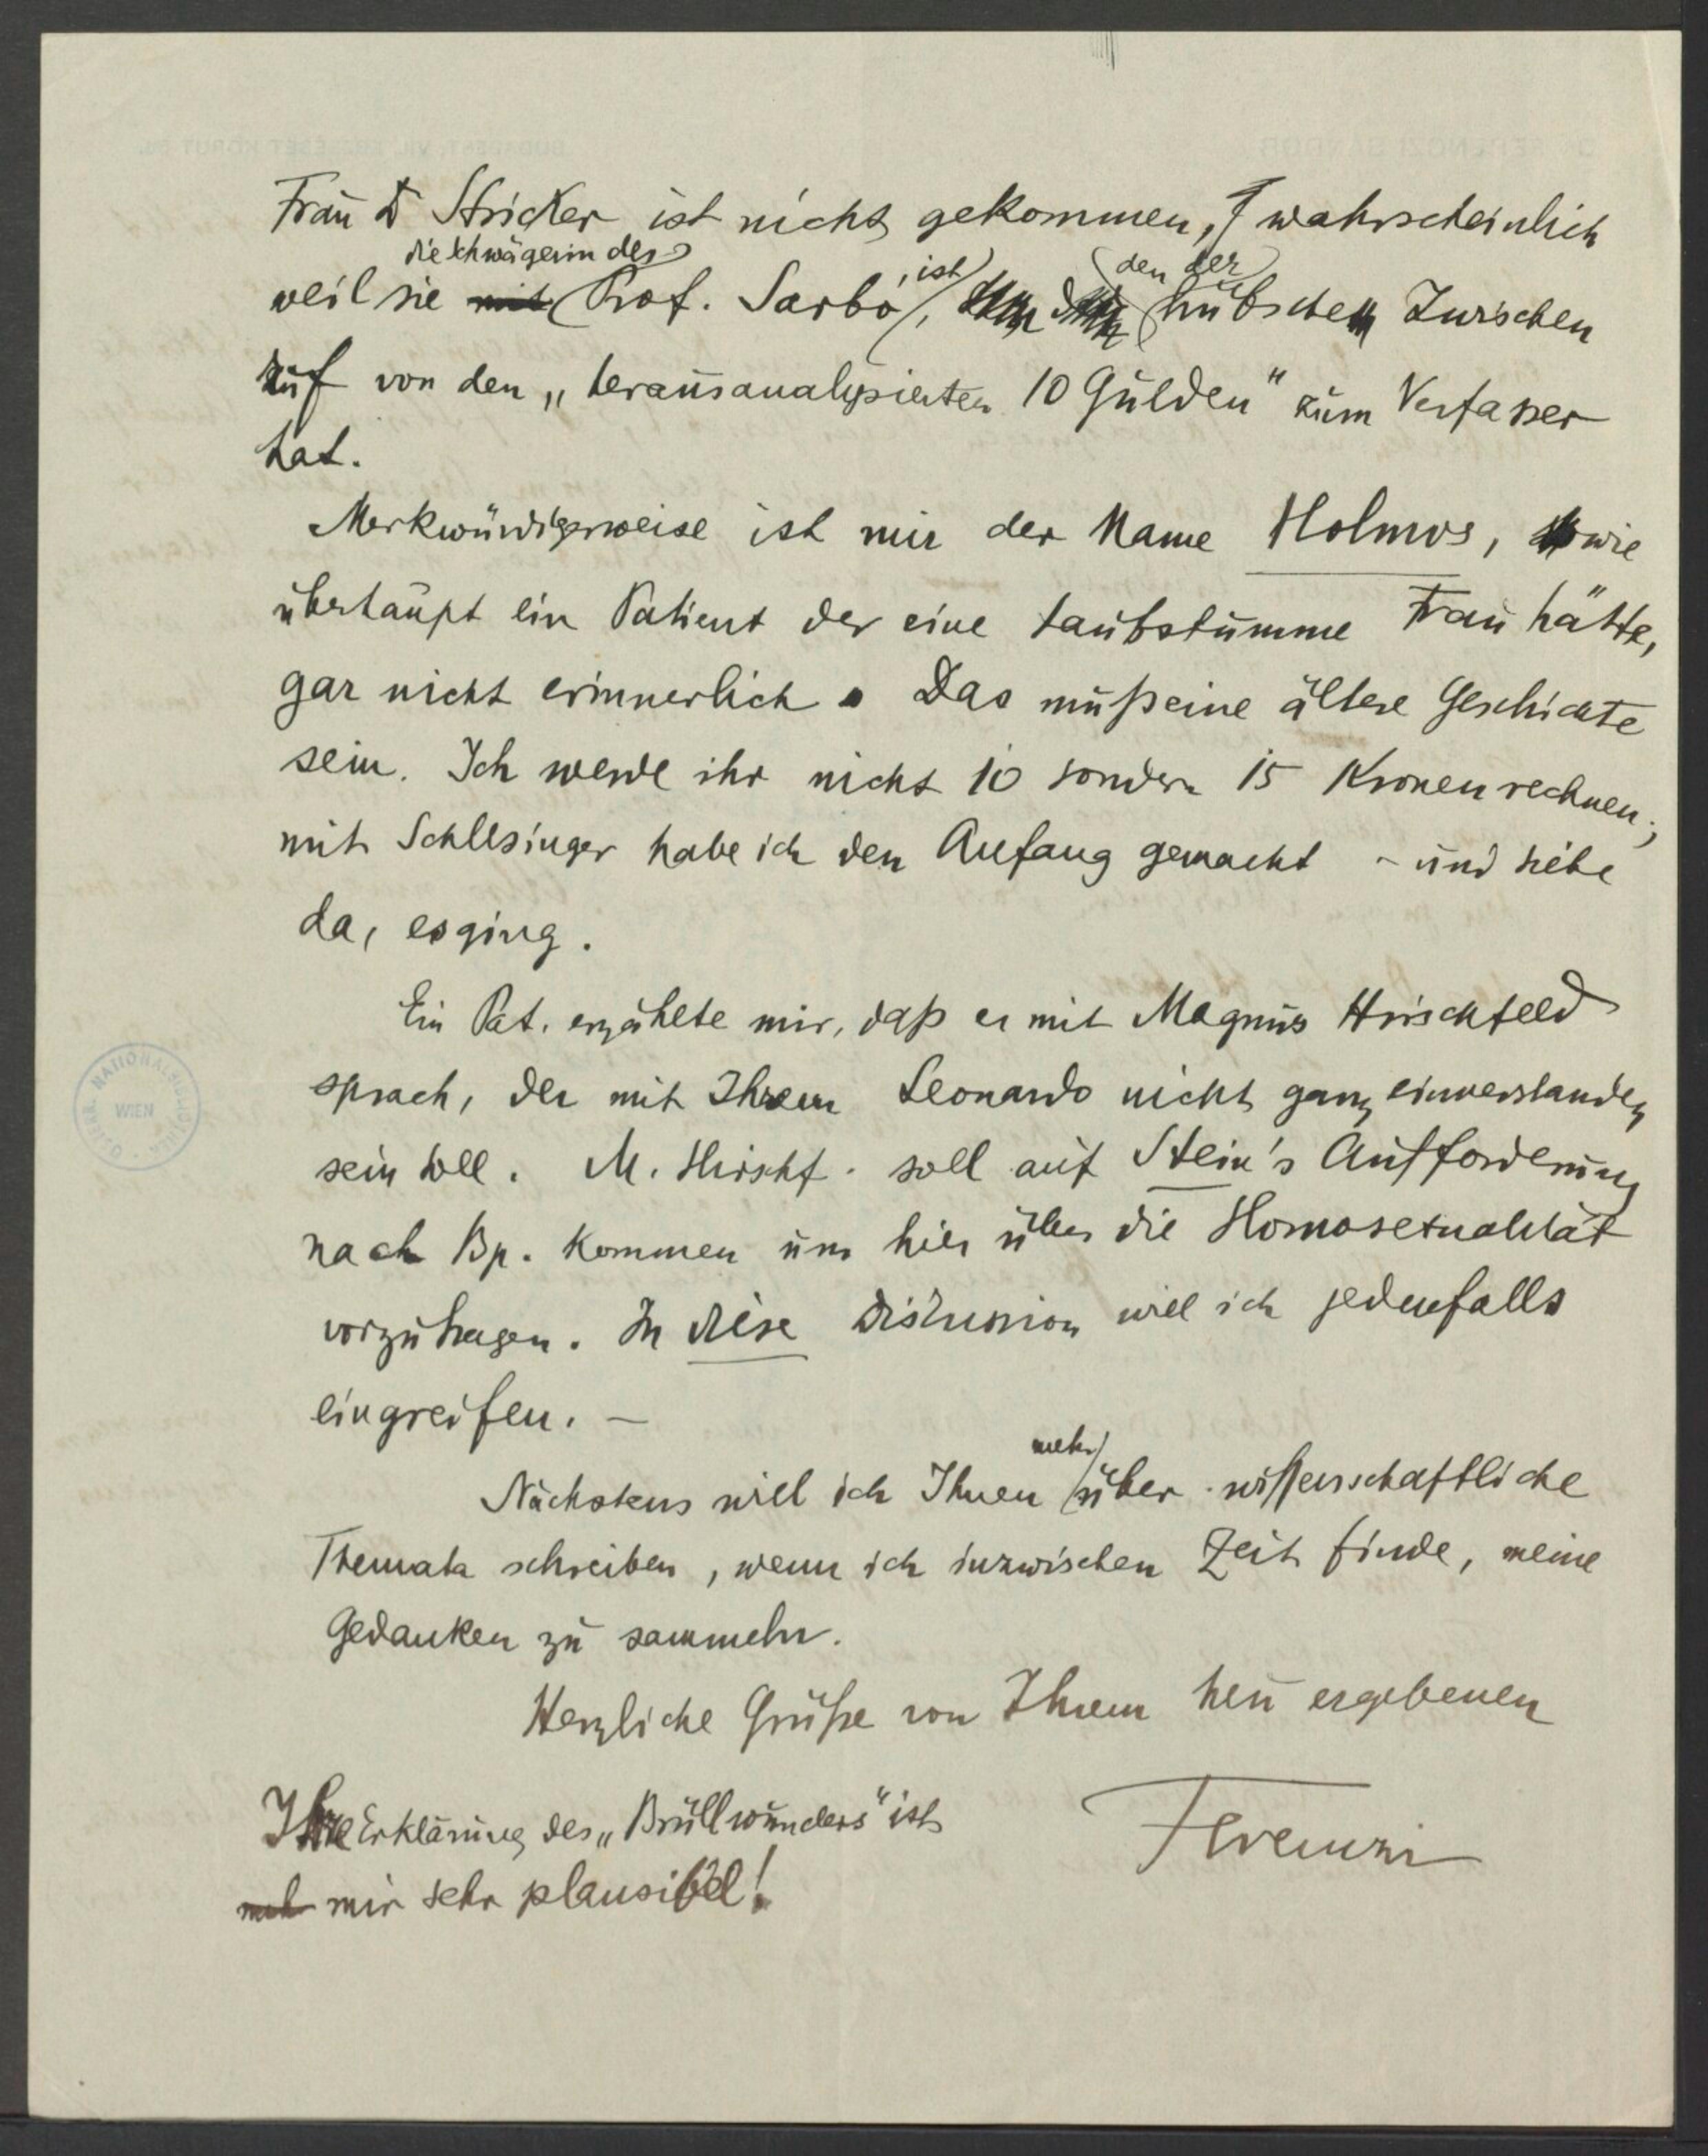 Frau Dr Stricker ist nicht gekommen, wahrscheinlich
die Schwägerin des , ist den der
weil sie mit Prof. Sarbó, hübschen Zwischen
ruf von den „herausanalysierten 10 Gulden" zum Verfasser
hat.
Merkwürdigerweise ist mir der Name Holmos, wie
überhaupt ein Patient der eine taubstumme Frau hätte,
gar nicht erinnerlich. Das muß eine ältere Geschichte
sein. Ich werde ihr nicht 10 sondern 15 Kronen rechnen;
mit Schlesinger habe ich den Anfang gemacht – und siehe
da, es ging.
Ein Pat. erzählte mir, daß er mit Magnus Hirschfeld
sprach, der mit Ihrem Leonardo nicht ganz einverstanden
sein soll. M. Hirschf. soll auf Stein's Aufforderung
nach Bp. kommen um hier über die Homosexualität
vorzutragen. In diese Diskussion will ich jedenfalls
eingreifen. –
mehr
Nächstens will ich Ihnen über wissenschaftliche
Themata schreiben, wenn ich inzwischen Zeit finde, meine
Gedanken zu sammeln.
Herzliche Grüße von Ihrem treu ergebenen
Ferenczi
Ihre Erklärung des „Brüllwunders" ist
mir sehr plausibel!
ÖSTERR. NATIONALBIBLIOTHEK
WIEN